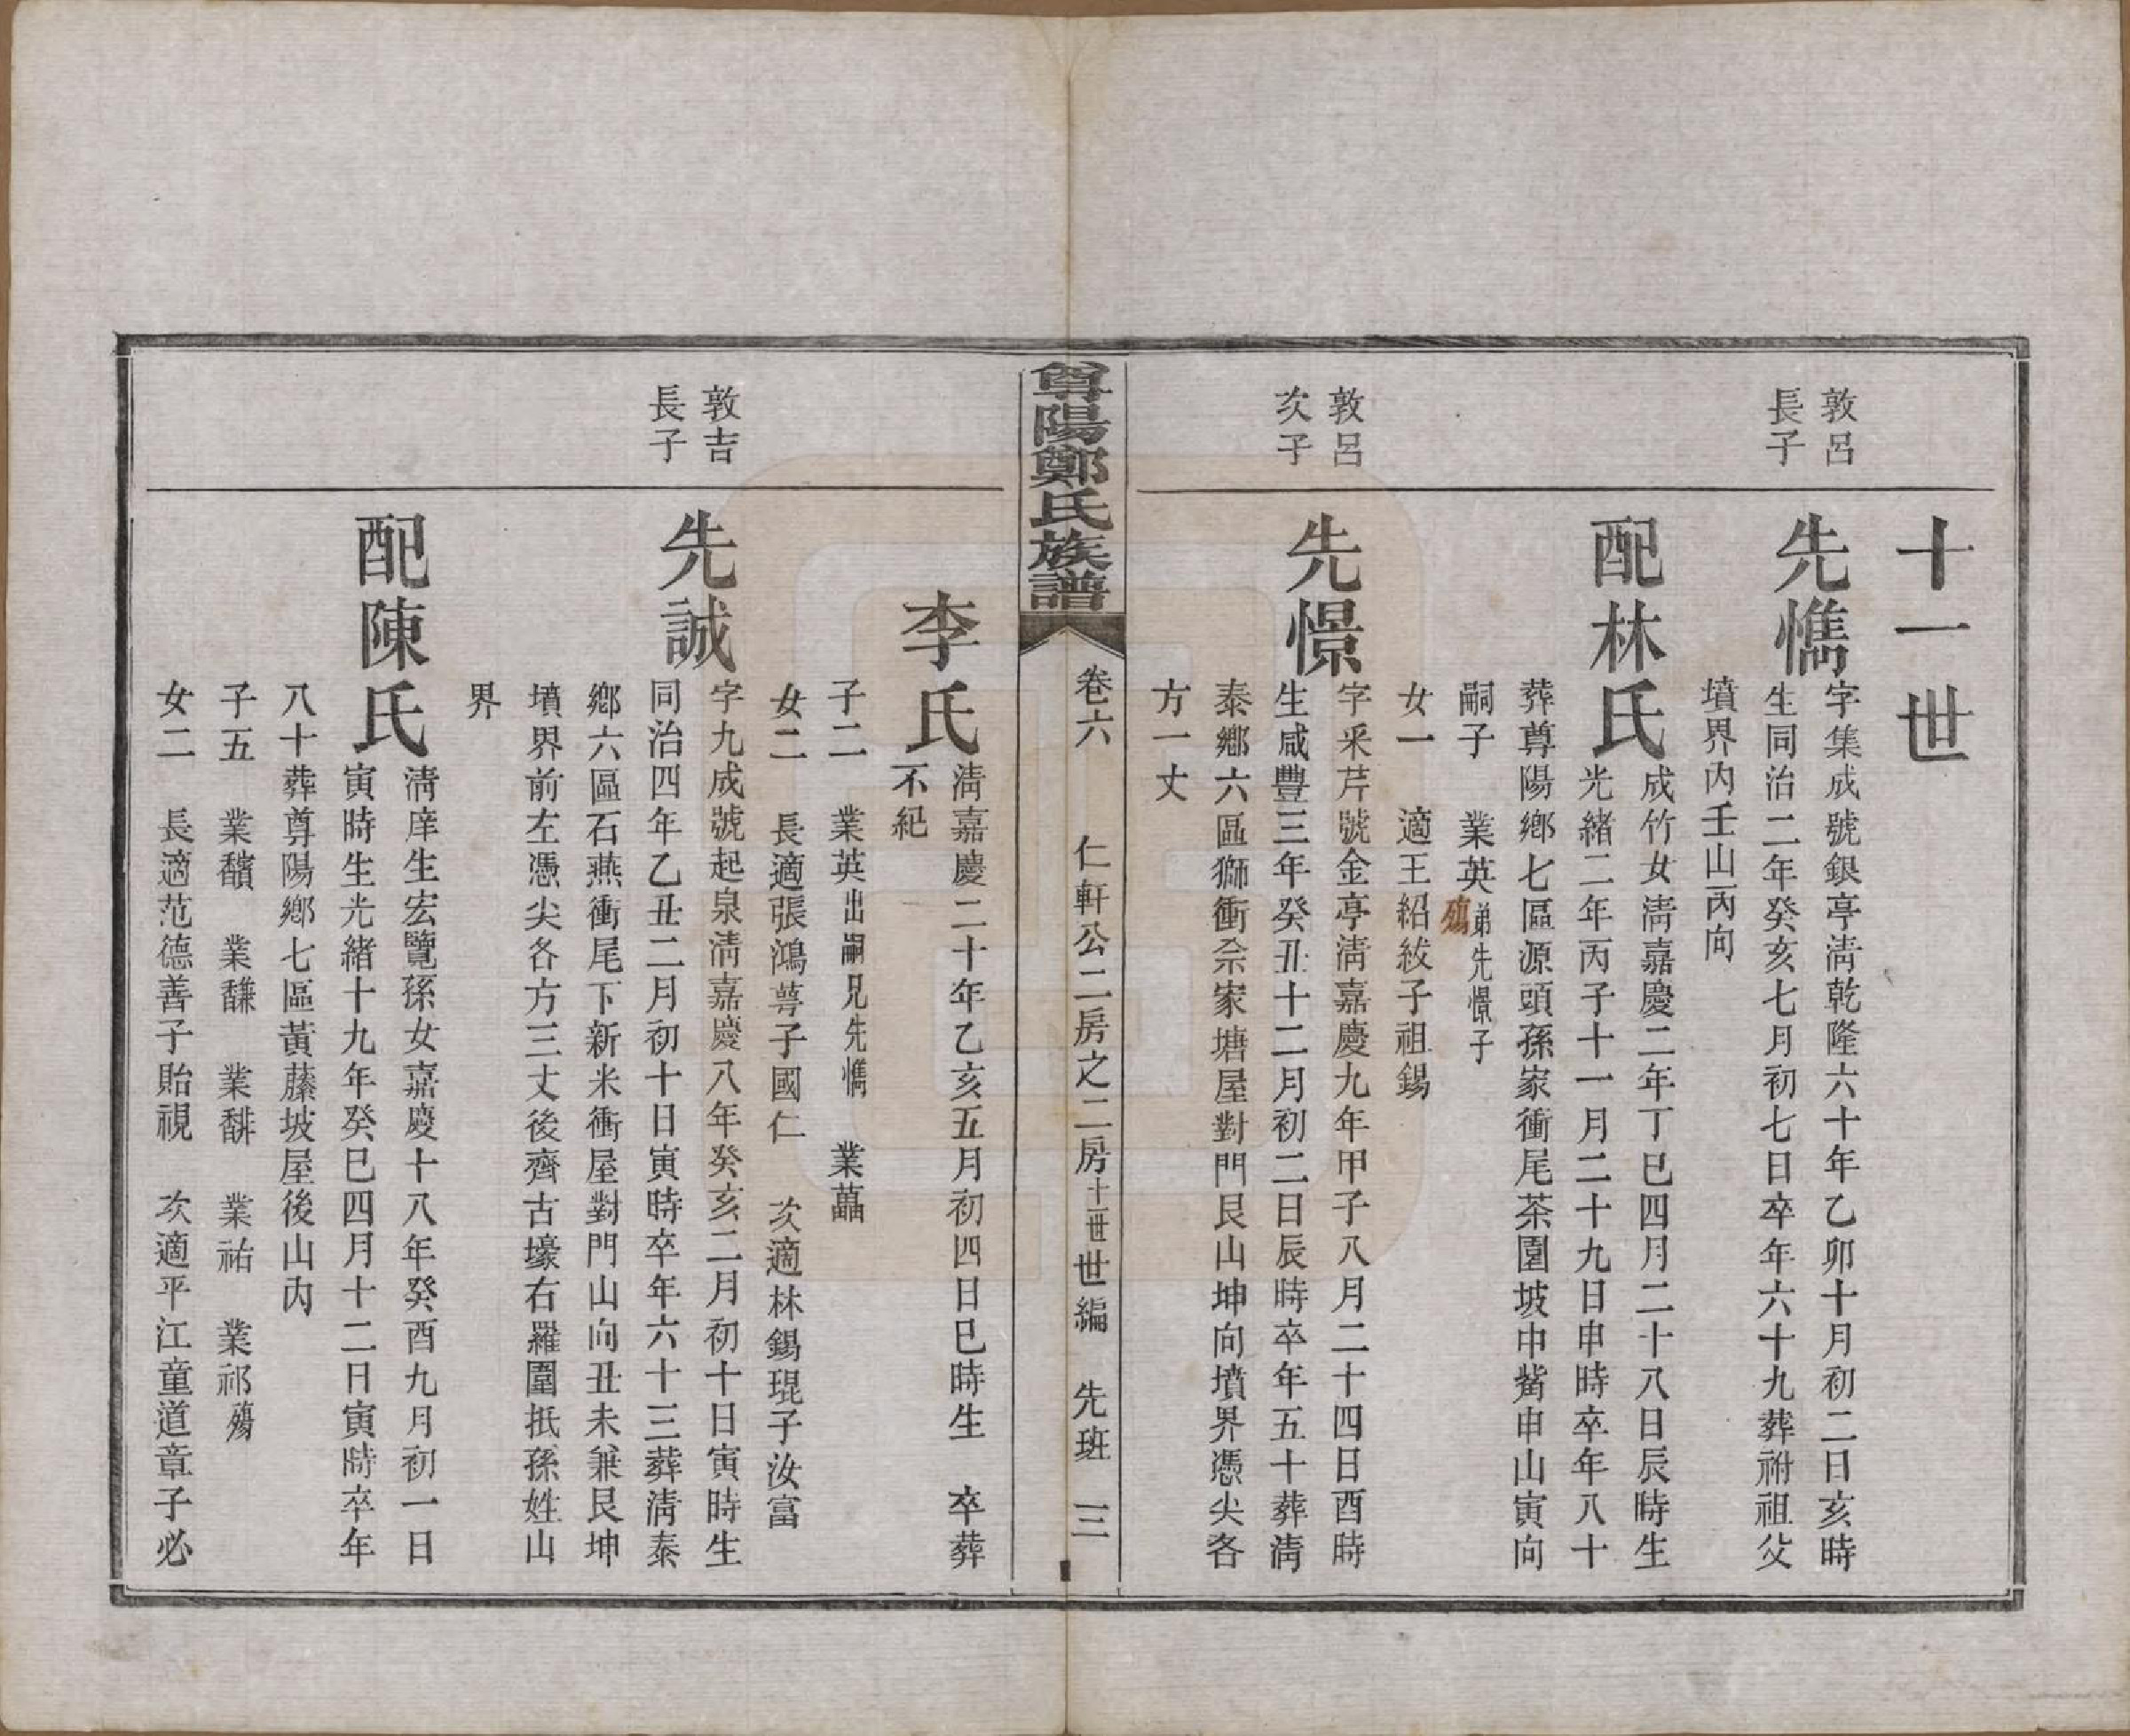 十一世
敦呂
長子
先懏
字集成號銀亭清乾隆六十年乙卯十月初二日亥時
生同治二年癸亥七月初七日卒年六十九葬祔祖父
墳界內壬山丙向
配林氏
成竹女清嘉慶二年丁巳四月二十八日辰時生
光緒二年丙子十一月二十九日申時卒年八十
葬尊陽鄉七區源頭孫家衝尾茶園坡中嘴申山寅向
嗣子 業英弟先憬子
殤
女一 適王紹紱子祖錫
敦呂
次子
先憬
字采芹號金亭清嘉慶九年甲子八月二十四日酉時
生咸豐三年癸丑十二月初二日辰時卒年五十葬清
泰鄉六區獅衝佘家塘屋對門艮山坤向墳界憑尖各
方一丈
尊陽鄭氏族譜
卷六 仁軒公二房之二房十一世世編 先班 三
李氏
清嘉慶二十年乙亥五月初四日巳時生 卒葬
不紀
子二 業英出嗣兄先懏 業藟
女二 長適張鴻萼子國仁 次適林錫琨子汝富
敦吉
長子
先誠
字九成號起泉清嘉慶八年癸亥二月初十日寅時生
同治四年乙丑二月初十日寅時卒年六十三葬清泰
鄉六區石燕衝尾下新米衝屋對門山向丑未兼艮坤
墳界前左憑尖各方三丈後齊古壕右羅圍抵孫姓山
界
配陳氏
清庠生宏覽孫女嘉慶十八年癸酉九月初一日
寅時生光緒十九年癸巳四月十二日寅時卒年
八十葬尊陽鄉七區黃藤坡屋後山內
子五 業馪 業馦 業馡 業祐 業祁殤
女二 長適范德善子貽視 次適平江童道章子必